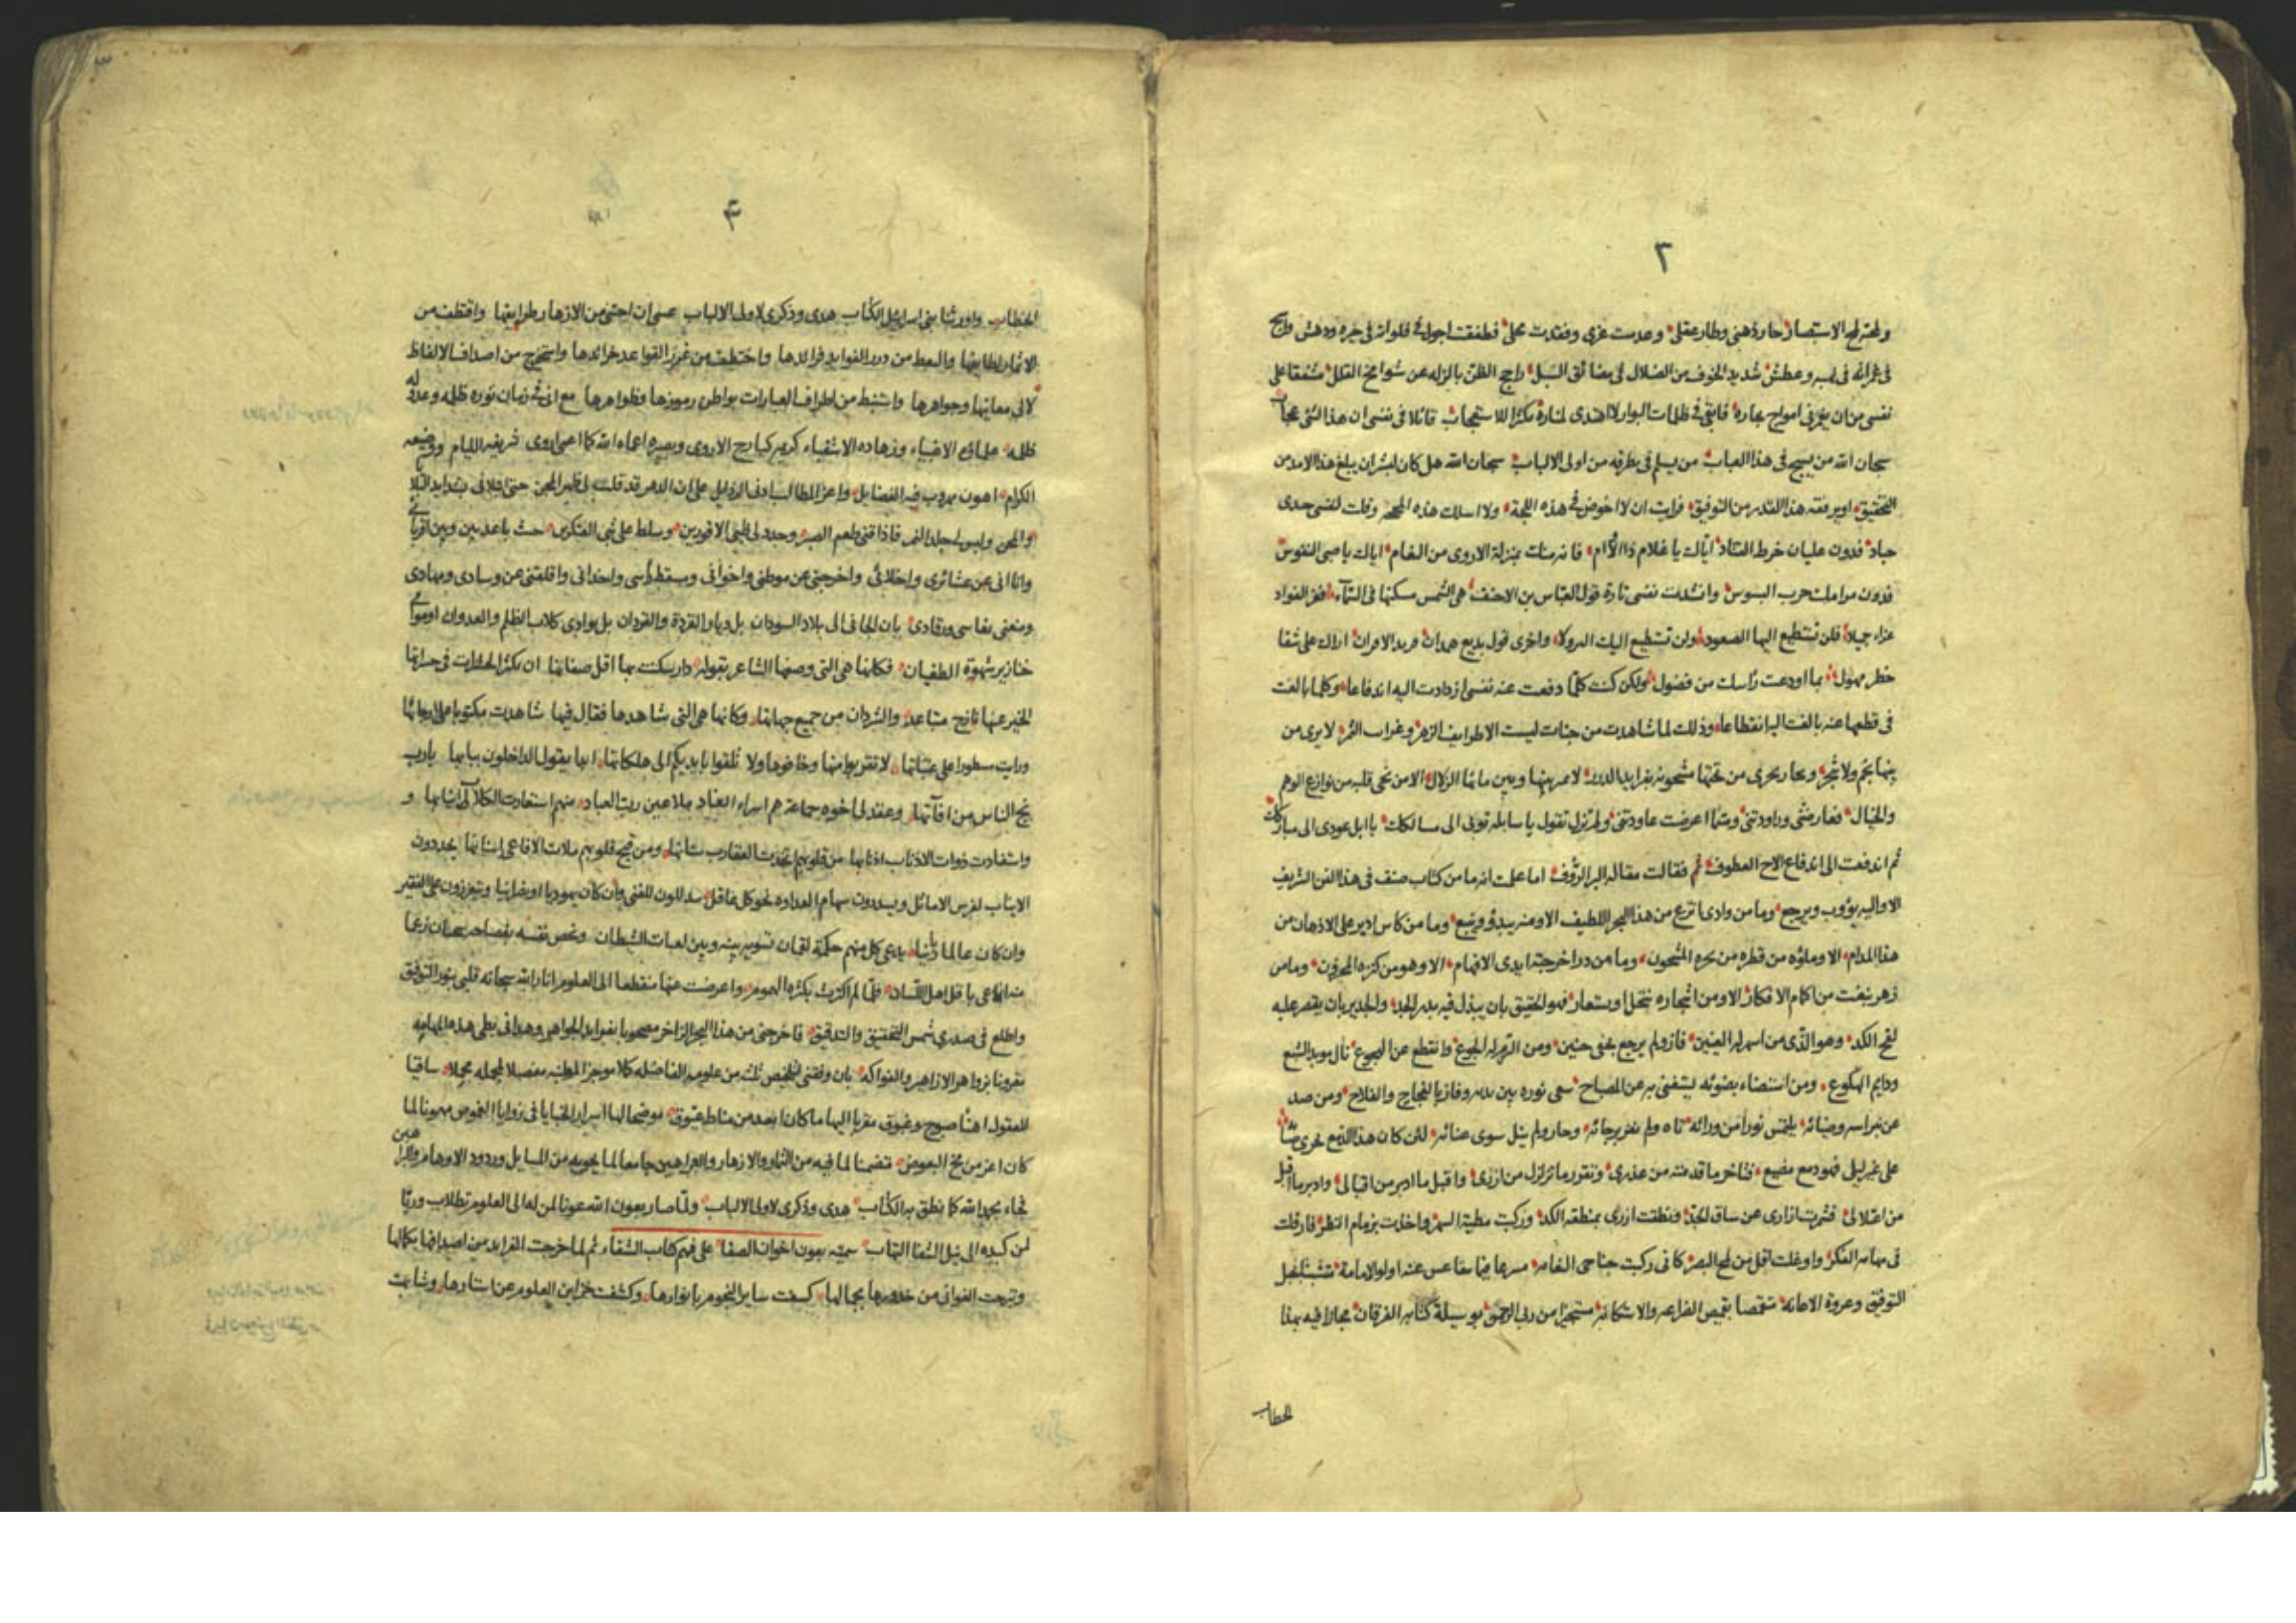 ٢
الاستبصار حار ذهنى وطار عقلى وعدمت عزى وفقدت فطفقت اجول فى فلواته فى حيرة ودهش
وعطش شديد الخوف من الضلال فى مضائق السبل راجح الظن بالزلة عن شوامخ القلل مشفقا على
نفسى من ان يغرقنى امواج بحاره فابقى فى ظلمات البوار لا اهتدى لمناره مكثرا للاستعجاب قائلا فى نفسى ان هذا لشئ عجاب
سبحان الله من يسبح فى هذا العباب من يسلم فى طرقه من اولى الالباب سبحان الله هل كان لبشر ان يبلغ هذا الامد من
التحقيق او يرفقه هذا القدر من التوفيق فرايت ان لا اخوض فى هذه اللجة ولا اسلك هذه المحجة وقلت لنفسى حيدى
حياد فدون عليان خرط القتاد اياك يا غلام ذا الاوام فانه منك بمنزلة الاروى من النعام اياك يا صبى النفوس
فدون مرامك حرب البسوس وانشدت نفسى تارة قول العباس بن الاحنف هى الشمس مسكنها فى السماء فعز الفواد
عزاء جميلا فلن تستطيع اليها الصعود ولن تستطيع اليك النزولا واخرى قول بديع همدان فريد الاقران اراك على شفا
خطر مهول بما اودعت راسك من فضول ولكن كنت كلما دفعت عنه نفسى ازدادت اليه اندفاعا وكلما بالغت
فى قطعها عنه بالغت اليه انقطاعا وذلك لما شاهدت من جنات ليست الا طرايف الزهر وغرايب الثمر لا يرى من
بينها نجم ولا شجر وبحار يجرى من تحتها مشحونة بفرايد الدرر لا مر بينها وبين مائها الزلال الا من نجى قلبه من نوازع الوهم
والخيال فعارضتنى وراودتنى وشما اعرضت عاودتنى ولم تزل تقول يا سابلة توبى الى مسالكك يا ابل عودى الى مباركك
ثم اندفعت الى اندفاع الاخ العطوف فقالت مقالة البر الرؤف اما علمت انه ما من كتاب صنف فى هذا الفن الشريف
الا واليه يؤوب ويرجع وما من وادى انتزع من هذا البحر اللطيف الا ومنه يبدؤ وينبع وما من كاس ادير على الاذهان من
هذا المدام الا وملؤه من قطرة من بحره المشحون وما من در اخرجته ايدى الافهام الا وهو من كنزه المخزون وما من
زهر نبغت من اكمام الافكار الا ومن اشجاره تنتحل او يستعار فهو الحقيق بان يبذل فيه بدر الجد والجدير بان يقصر عليه
الكد وهو الذى من اسهر له العينين فاز ولم يرجع بخفى حنين ومن التزم له الجوع وانقطع عن الهجوع نال موبد الشبع
ودايم الهكوع ومن استضاء بضوئه يستغنى به عن المصباح سعى نوره بين يديه وفاز بالنجاح والفلاح ومن صد
عن نبراسه وضيائه يلتمس نورا من ورائه تاه ولم بغير رجائه وحار ولم ينل سوى عنائه لئن كان هذا الدمع يجرى صبابة
على غير ليلى فهو دمع مضيع فتاخر ما قدمته من عذرى وتقور ما تزلزل من ازرى واقبل ما ادبر من اقبالى وادبر ما اقبل
من اعتلالى فشمرت ازارى عن ساق الجد ونطقت ازرى بمنطقة الكد وركبت مطية السهر واخذت بزمام النظر فارقلت
فى مهامه الفكر واوغلت اقل من لمح البصر كانى ركبت جناحى النعامه مسرعا فيما تقاعس عنه اولو الامامة متشبثا بحبل
التوفيق وعروة الاعانة متقمصا بقميص الضراعه والاستكانة مستجيرا من ربى الرحمن بوسيلة كتابه الفرقان مجازا فيه بهذا
الخطاب
٣
الخطاب واورثنا بنى اسرائيل الكتاب هدى وذكرى لاولى الالباب عسى ان اجتنى من الازهار طرايفها واقتطف من
الاثمار لطايفها والتقط من درر الفوايد فرائدها واختطف من غرر القواعد خرائدها واستخرج من اصداف الالفاظ
لالى معانيها وجواهرها واستنبط من اطراف العبارات بواطن رموزها وظواهرها مع انى فى زمان نوره ظلمه وعدله
ظلمه علمائه الاغبياء وزهاده الاشقياء كريم كبارح الاروى وبصيره اعماه الله كما اعمى اروى شريفه الليام ووضيعه
الكرام اهون مهروب فيه الفضايل واعز المطالب ادنى الرذايل على ان الدهر قد قلب لى ظهر المجن حتى ابتلانى بشدايد البلا
والمحن ولبس لى جلد النمر فاذاقنى طعم الصبر وحدد لى ظبى الاقورين وسلط على بنى الفتكرين حيث باعد بينى وبين اقربائى
وانا انى عن عشائرى واخلائى واخرجنى عن موطنى واخوانى ومسقط راسى واخدانى واقلقنى عن وسادى ومهادى
ومنعنى نعاسى ورقادى بان الجانى الى بلاد السودان بل ديار القردة والقردان بل بوادى كلاب الظلم والعدوان او موائى
خنازير شهوة الطغيان فكانها هى التى وصفها الشاعر بقوله دار سكنت بها اقل صفاتها ان تكثر الحشرات فى حجراتها
الخير عنها نازح متباعد والشر دان من جميع جهاتها وكانها هى التى شاهدها فقال فيها شاهدت مكتوبا على ارجائها
ورايت سطورا على عتباتها لا تقربوا منها وخافوها ولا تلقوا بايديكم الى هلكاتها ابدا يقول الداخلون ببابها يا رب
نج الناس من افاتها وعقد لى اخوه جماعة هم امراء العناد ملاعين رب العباد منهم استعارت الكلاب انيابها و
واستفادت ذوات الاذناب اذنابها من قلوبهم العقارب ومن قيح قلوبهم ملات الافاعى اسنانها يحددون
الانياب لفرس الاماثل ويسددون سهام العداوه نحو كل عاقل للغنى وان كان يهوديا او نصرانيا ويتعززون على الفقير
وان كان عالما ربانيا يدعى كل منهم حكمة لقمان بينه وبين لعبات الشيطان نفسه بفصاحة سحبان زعما
باقل اهل اللسان فلما لم اكترث بكثرة الهموم واعرضت عنها منقطعا الى العلوم انار الله سبحانه قلبى بنور التوفيق
واطلع فى صدرى شمس التحقيق والتدقيق فاخرجنى من هذا البحر الزاخر مصحوبا بفرايد الجواهر وهدانى بطى هذه المهامه
مقرونا بزواهر الازاهير والفواكه بان وفقنى لتلخيص ثلث من علومه الفاضلة كلاما موجزا مفصلا لمجمله مجملا ساقيا
للعقول اهنا صبوح وغبوق مقربا اليها ما كان ابعد من مناط عيوق موضحا لها اسرار الخبايا فى زوايا الغموض مهونا لما
كان اعز من مخ البعوض متضمنا لما فيه من الثمار والازهار والبراهين جامعا لما يحويه من المسايل وردود الاوهام والبراهين
فجاء بحمد الله كما نطق به الكتاب هدى وذكرى لاولى الالباب ولما صار بعون الله عونا لمن له الى العلوم تطلاب وريا
لمن كبده الى نيل الشفا التهاب سميته بعون اخوان الصفا على فهم كتاب الشفاء ثم لما خرجت الفرايد من اصدافها بكمالها
وتبرجت الغوانى من خدورها بجمالها كسفت ساير النجوم بانوارها وكشفت خزاين العلوم عن استارها وشابهت